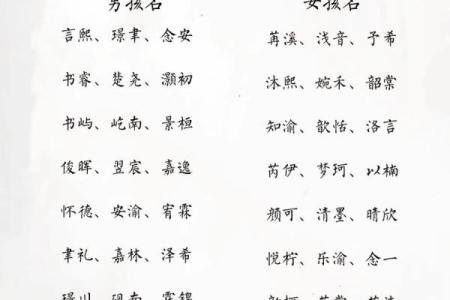 男孩名
言熙、璟聿、念安
书睿、楚尧、灏初
书屿、屹南、景桓
俊晖、翌宸、嘉逸
怀德、安渝、宥霖
聿礼、嘉林、泽希
女孩名
苒溪、浅音、予希
沐熙、婉禾、韶棠
知渝、歆恬、洛言
芮伊、梦珂、以楠
颜可、清墨、晴欣
悦柠、乐渝、念一